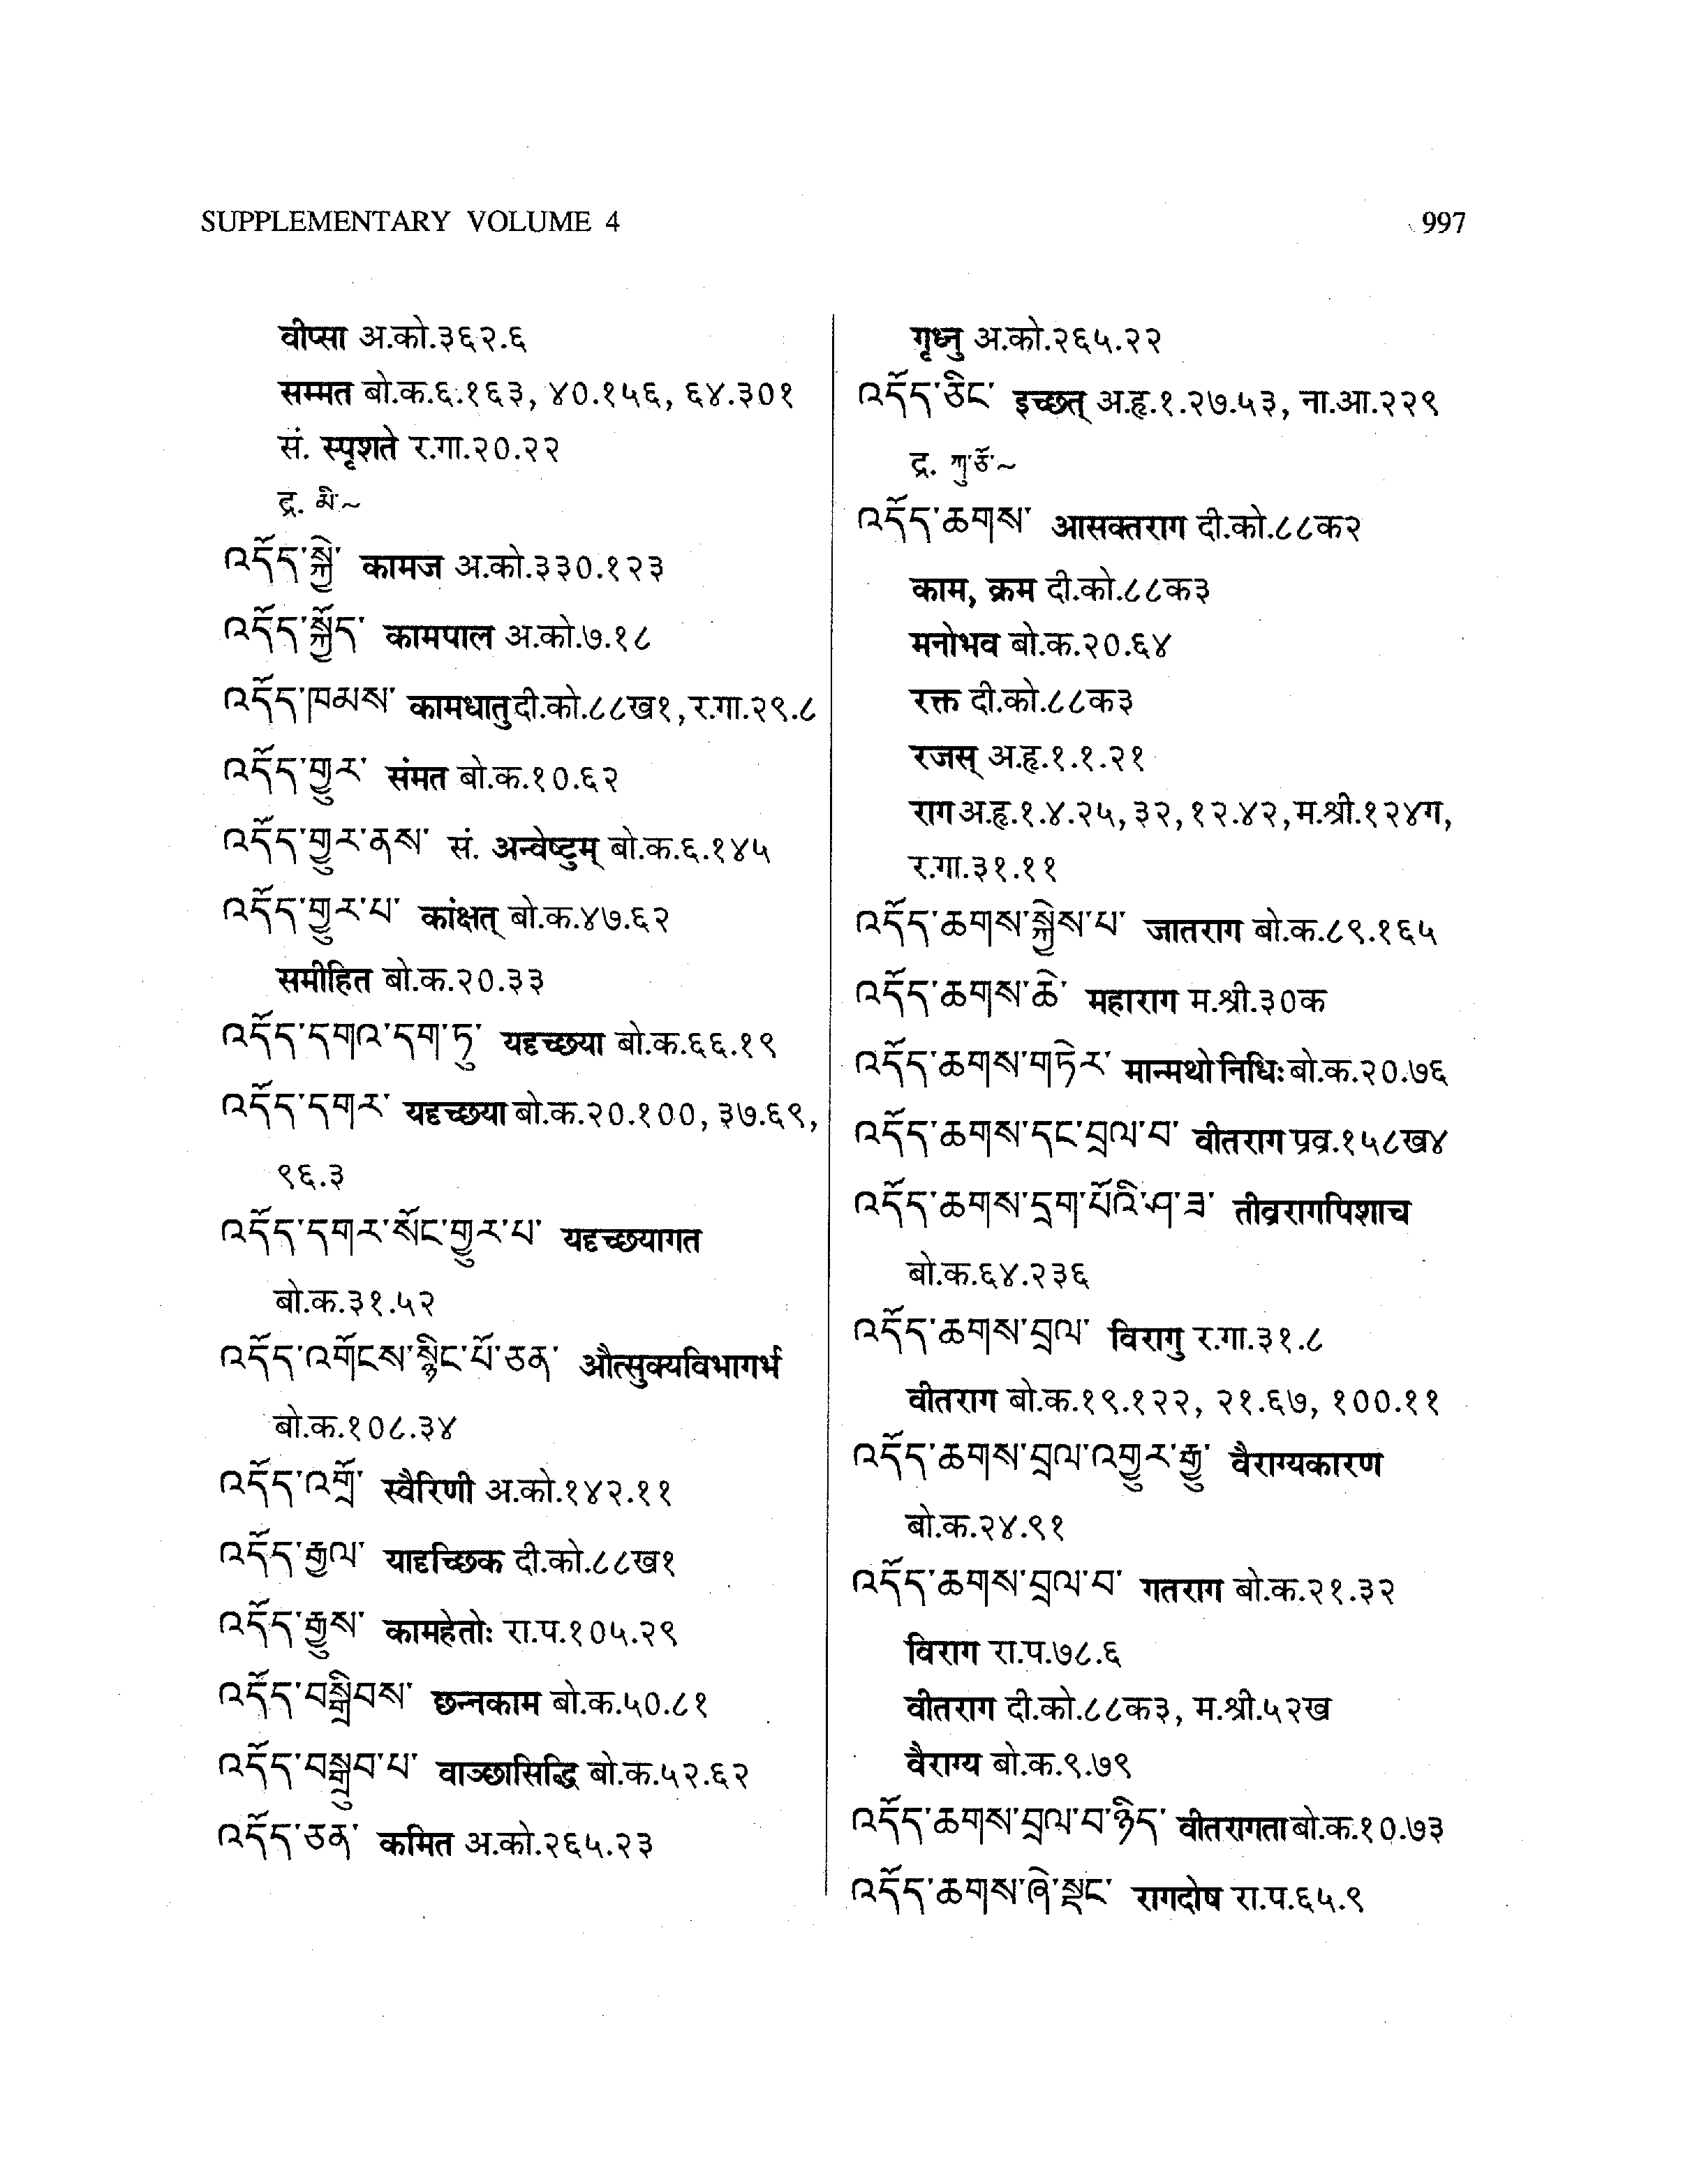 SUPPLEMENTARY VOLUME 4
997
वीप्सा अ.को.३६२.६
सम्मत बो.क.६.१६३, ४०.१५६, ६४.३०१
सं. स्पृशते र.गा.२०.२२
द्र. མི་~
འདོད་སྐྱེ་ कामज अ.को.३३०.१२३
འདོད་སྐྱོད་ कामपाल अ.को.७.१८
འདོད་ཁམས་ कामधातु दी.को.८८ख१, र.गा.२९.८
འདོད་གྱུར་ संमत बो.क.१०.६२
འདོད་གྱུར་ནས་ सं. अन्वेष्टुम् बो.क.६.१४५
འདོད་གྱུར་པ་ कांक्षत् बो.क.४७.६२
समीहित बो.क.२०.३३
འདོད་དགའ་དག་ཏུ་ यदृच्छया बो.क.६६.१९
འདོད་དགར་ यदृच्छया बो.क.२०.१००, ३७.६९,
९६.३
འདོད་དགར་སོང་གྱུར་པ་ यदृच्छयागत
बो.क.३१.५२
འདོད་འགོངས་སྙིང་པོ་ཅན་ औत्सुक्यविभागर्भ
बो.क.१०८.३४
འདོད་འགྲོ་ स्वैरिणी अ.को.१४२.११
འདོད་རྒྱལ་ यादृच्छिक दी.को.८८ख१
འདོད་རྒྱུས་ कामहेतोः रा.प.१०५.२९
འདོད་བསྒྲིབས་ छन्नकाम बो.क.५०.८१
འདོད་བསྒྲུབ་པ་ वाञ्छासिद्धि बो.क.५२.६२
འདོད་ཅན་ कमित अ.को.२६५.२३
गृध्नु अ.को.२६५.२२
འདོད་ཅིང་ इच्छत् अ.हृ.१.२७.५३, ना.आ.२२९
द्र. ཀུ་ཅོ་~
འདོད་ཆགས་ आसक्तराग दी.को.८८क२
काम, क्रम दी.को.८८क३
मनोभव बो.क.२०.६४
रक्त दी.को.८८क३
रजस् अ.हृ.१.१.२१
राग अ.हृ.१.४.२५, ३२, १२.४२, म.श्री.१२४ग,
र.गा.३१.११
འདོད་ཆགས་སྐྱེས་པ་ जातराग बो.क.८९.१६५
འདོད་ཆགས་ཆེ་ महाराग म.श्री.३०क
འདོད་ཆགས་གཏེར་ मान्मथो निधिः बो.क.२०.७६
འདོད་ཆགས་དང་བྲལ་བ་ वीतराग प्रव्र.१५८ख४
འདོད་ཆགས་དྲག་པོའི་ཤ་ཟ་ तीव्ररागपिशाच
बो.क.६४.२३६
འདོད་ཆགས་བྲལ་ विरागु र.गा.३१.८
वीतराग बो.क.१९.१२२, २१.६७, १००.११
འདོད་ཆགས་བྲལ་འགྱུར་རྒྱུ་ वैराग्यकारण
बो.क.२४.९१
འདོད་ཆགས་བྲལ་བ་ गतराग बो.क.२१.३२
विराग रा.प.७८.६
वीतराग दी.को.८८क३, म.श्री.५२ख
वैराग्य बो.क.९.७९
འདོད་ཆགས་བྲལ་བ་ཉིད་ वीतरागता बो.क.१०.७३
འདོད་ཆགས་ཞེ་སྡང་ रागदोष रा.प.६५.९